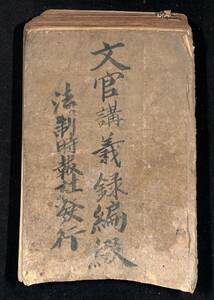 文官講義録編綴
法制時報社発行